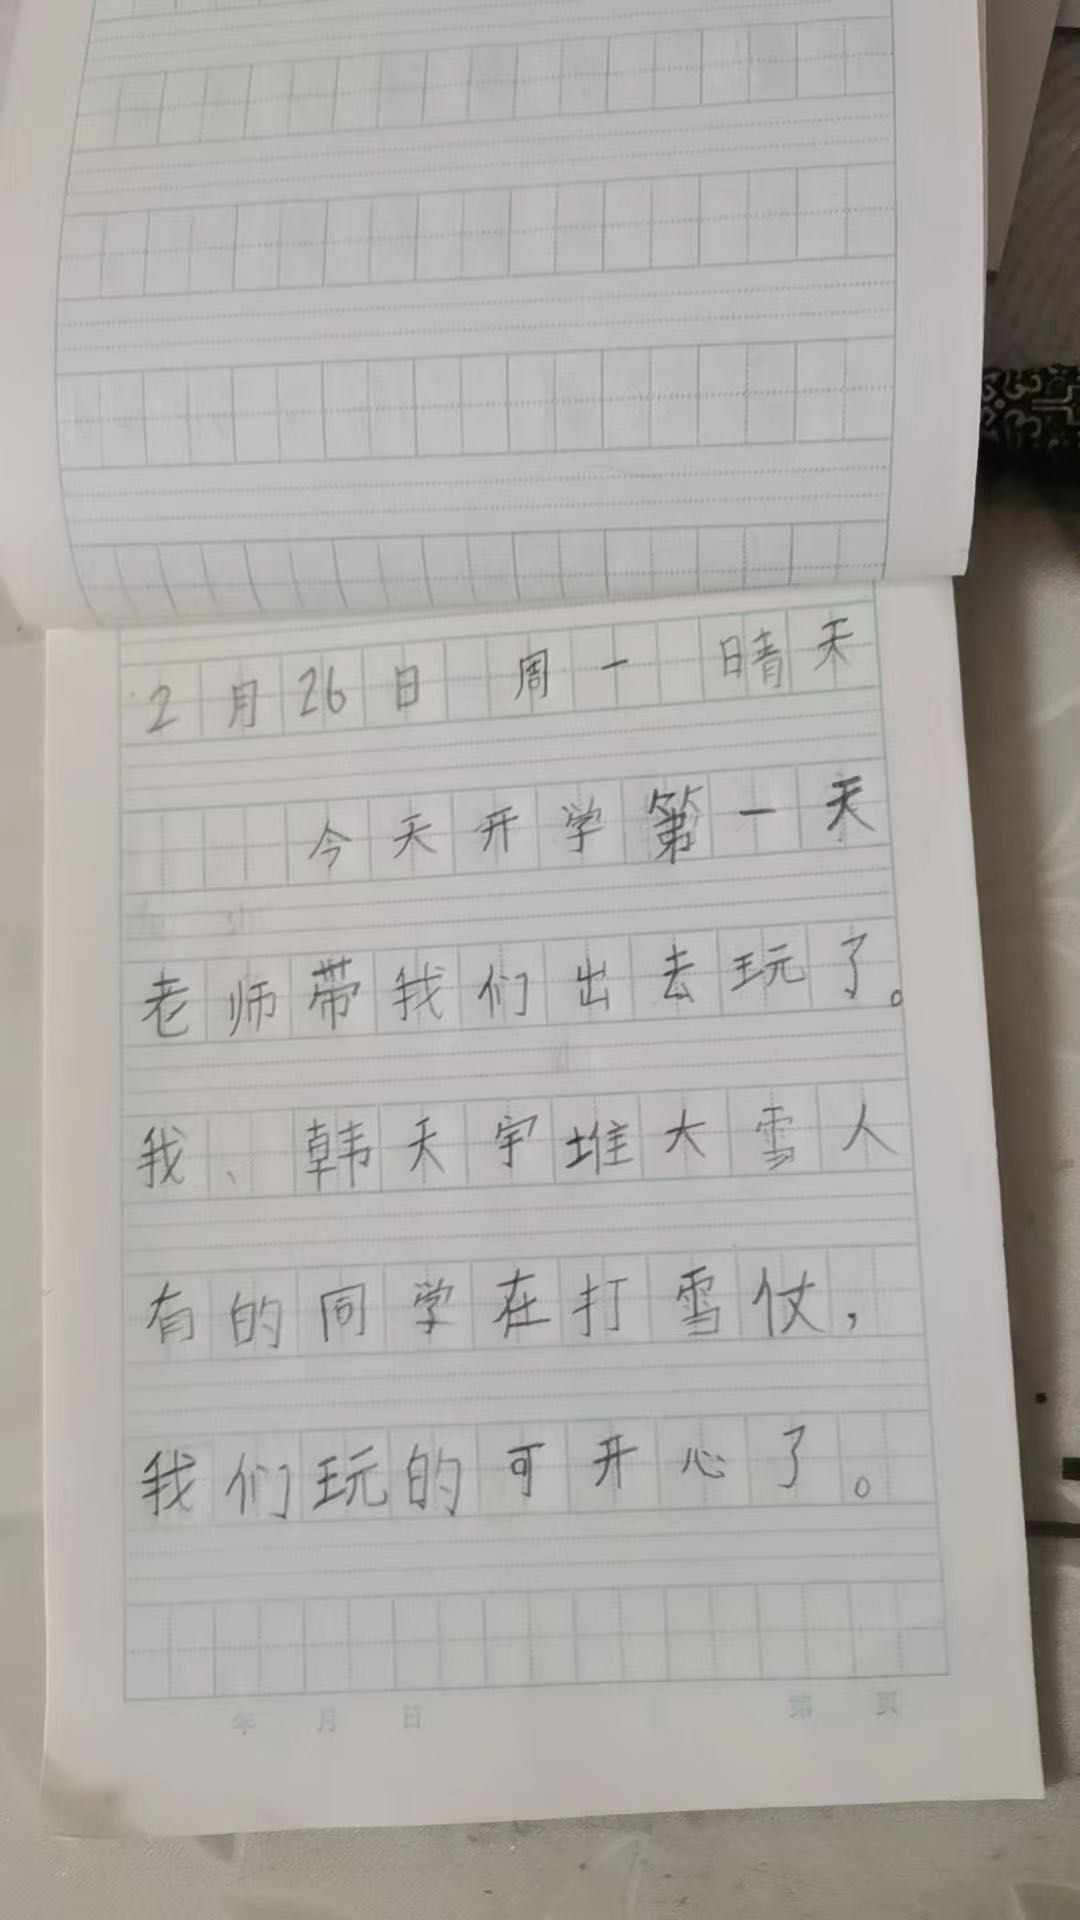 2月26日 周一 晴天
今天开学第一天
老师带我们出去玩了。
我、韩天宇堆大雪人
有的同学在打雪仗,
我们玩的可开心了。
年 月 日 第 页